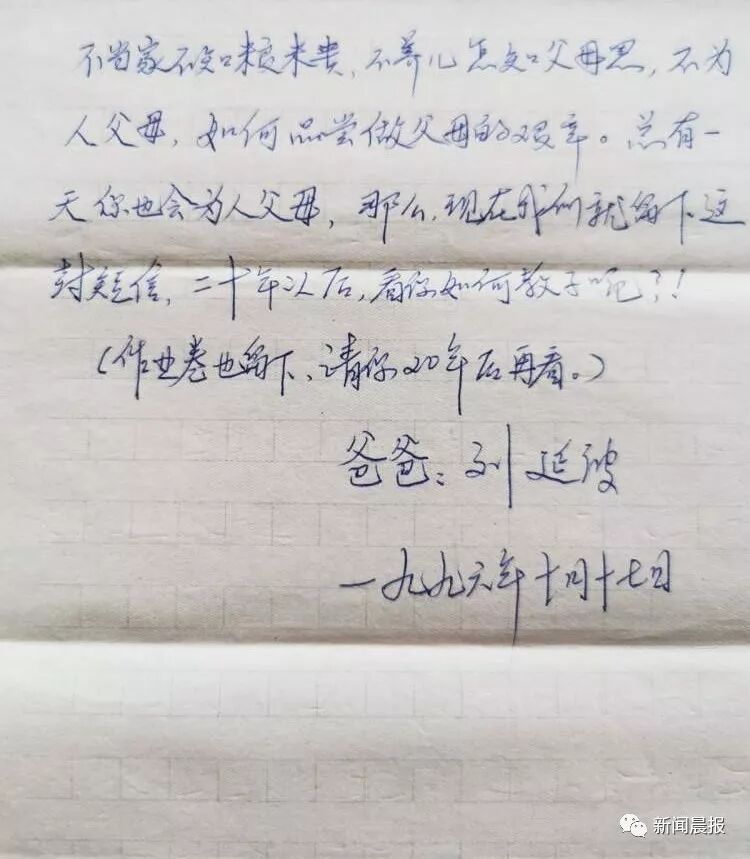 不当家不知粮米贵，不养儿怎知父母恩，不为
人父母，如何品尝做父母的艰辛。总有一
天你也会为人父母，那么，现在我们就留下这
封短信，二十年以后，看你如何教子呢？！
（作业卷也留下、请你20年后再看。）
爸爸：刘延波
一九九六年十月十七日
新闻晨报